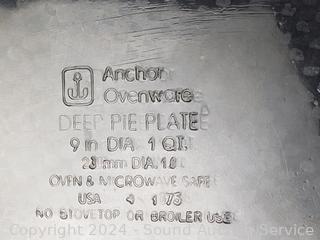 Anchor
Ovenware
DEEP PIE PLATE
9 in DIA. 1 QT.
23 mm DIA. 1
OVEN & MICROWAVE SAFE
USA 4 1 73
NO STOVETOP OR BROILER USE
Copyright 2024 - Sound Auction Service